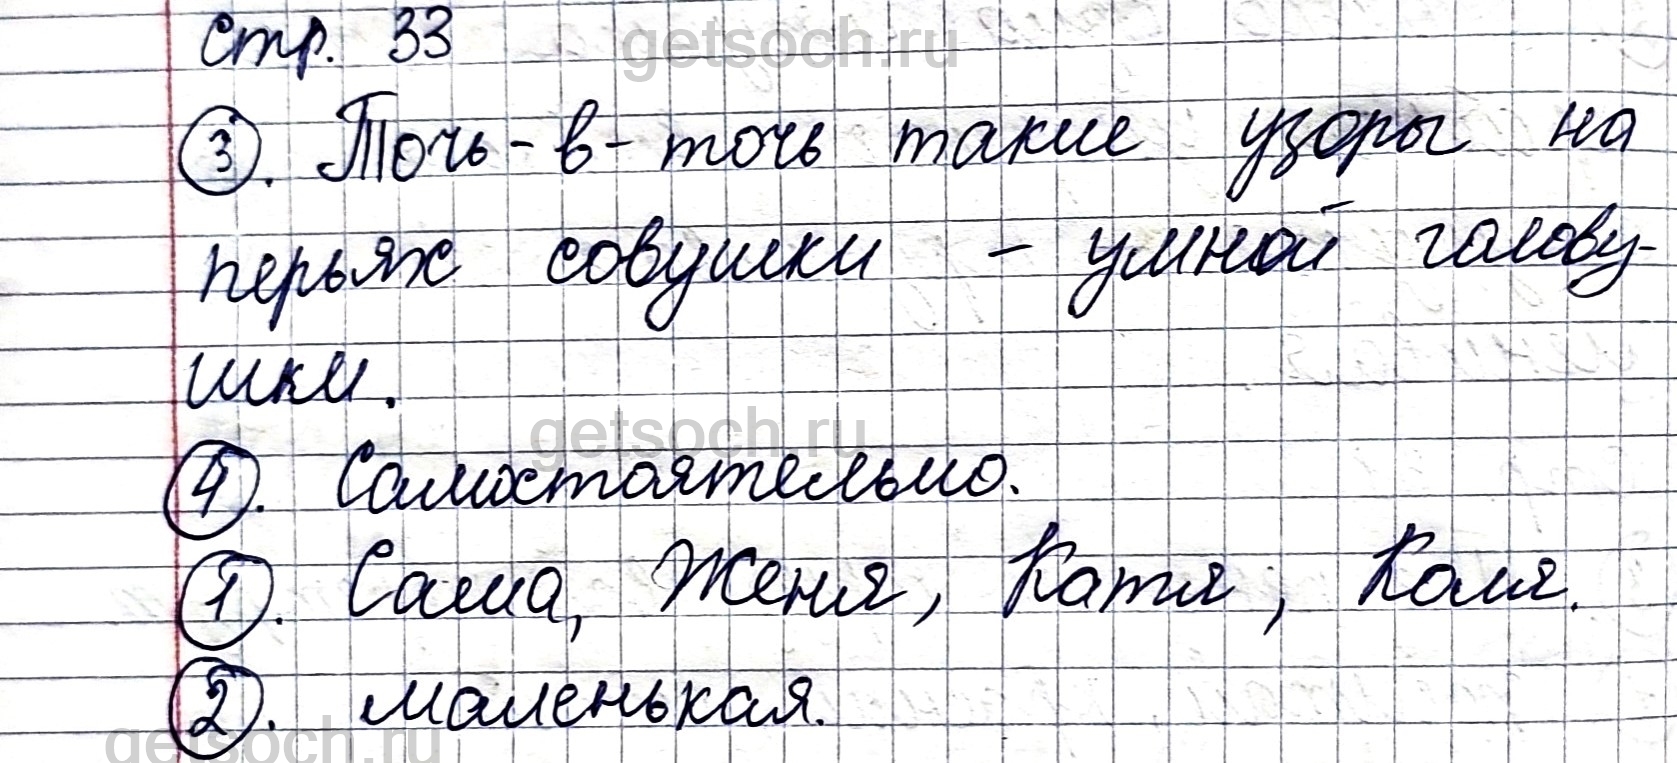 стр. 33
getsoch.ru
3. Точь-в-точь такие узоры на
перьях совушки - умной голову-
шки.
getsoch.ru
4. Самостоятельно.
1. Саша, Женя, Катя, Коля.
2. маленькая.
getsoch.ru